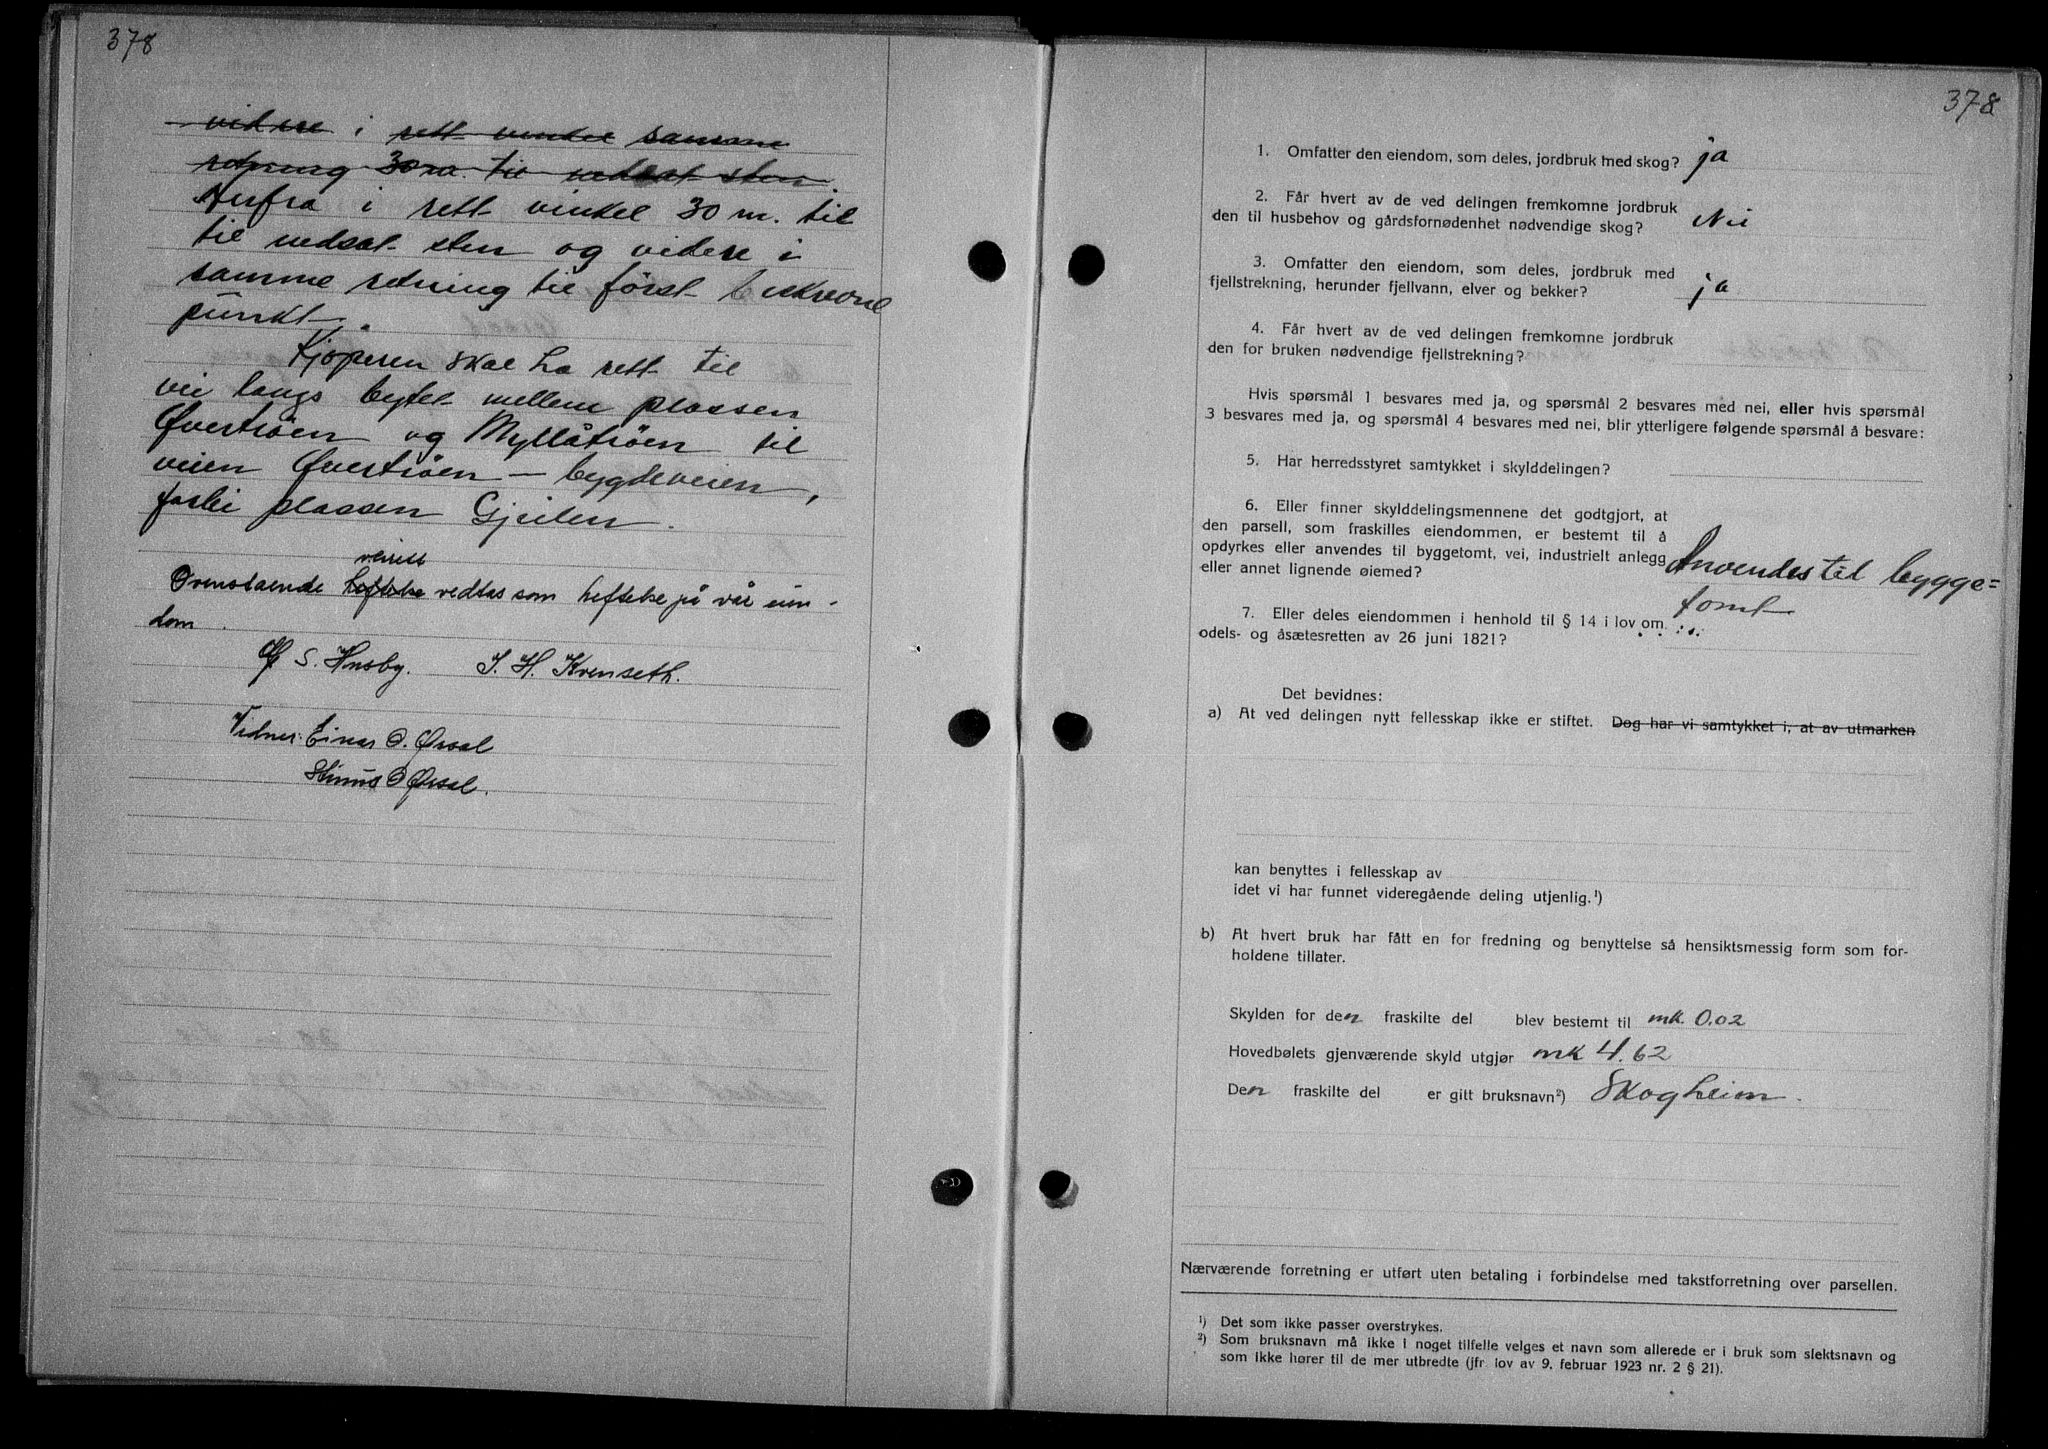 378
vidre i rett vinkel samme
retning 30 m. til nedsat sten.
Herfra i rett vinkel 30 m. til
til nedsat sten og videre i
samme retning til først beskrevne
punkt.
Kjøperen skal ha rett til
vei langs bytet mellem plassen
Øvertrøen og Myllåtrøen til
veien Øvertrøen - bygdeveien,
forbi plassen Gjeilen.
veirett
Ovenstaende heftelse vedtas som heftelse på vår eien-
dom.
S. Husby. J. H. Kvenseth.
Vidner: Einar O. Øvsal
O Øvsal.
378
1. Omfatter den eiendom, som deles, jordbruk med skog? ja
2. Får hvert av de ved delingen fremkomne jordbruk
den til husbehov og gårdsfornødenhet nødvendige skog? Nei
3. Omfatter den eiendom, som deles, jordbruk med
fjellstrekning, herunder fjellvann, elver og bekker? ja
4. Får hvert av de ved delingen fremkomne jordbruk
den for bruken nødvendige fjellstrekning?
Hvis spørsmål 1 besvares med ja, og spørsmål 2 besvares med nei, eller hvis spørsmål
3 besvares med ja, og spørsmål 4 besvares med nei, blir ytterligere følgende spørsmål å besvare:
5. Har herredsstyret samtykket i skylddelingen?
6. Eller finner skylddelingsmennene det godtgjort, at
den parsell, som fraskilles eiendommen, er bestemt til å
opdyrkes eller anvendes til byggetomt, vei, industrielt anlegg
eller annet lignende øiemed? Anvendes til bygge=
tomt
7. Eller deles eiendommen i henhold til § 14 i lov om
odels- og åsætesretten av 26 juni 1821?
Det bevidnes:
a) At ved delingen nytt fellesskap ikke er stiftet. Dog har vi samtykket i, at av utmarken
kan benyttes i fellesskap av
idet vi har funnet videregående deling utjenlig.¹)
b) At hvert bruk har fått en for fredning og benyttelse så hensiktsmessig form som for-
holdene tillater.
Skylden for den fraskilte del blev bestemt til mk. 0.02
Hovedbølets gjenværende skyld utgjør mk 4.62
Den fraskilte del er gitt bruksnavn²) Skogheim.
Nærværende forretning er utført uten betaling i forbindelse med takstforretning over parsellen.
¹) Det som ikke passer overstrykes.
²) Som bruksnavn må ikke i noget tilfelle velges et navn som allerede er i bruk som slektsnavn og
som ikke hører til de mer utbredte (jfr. lov av 9. februar 1923 nr. 2 § 21).